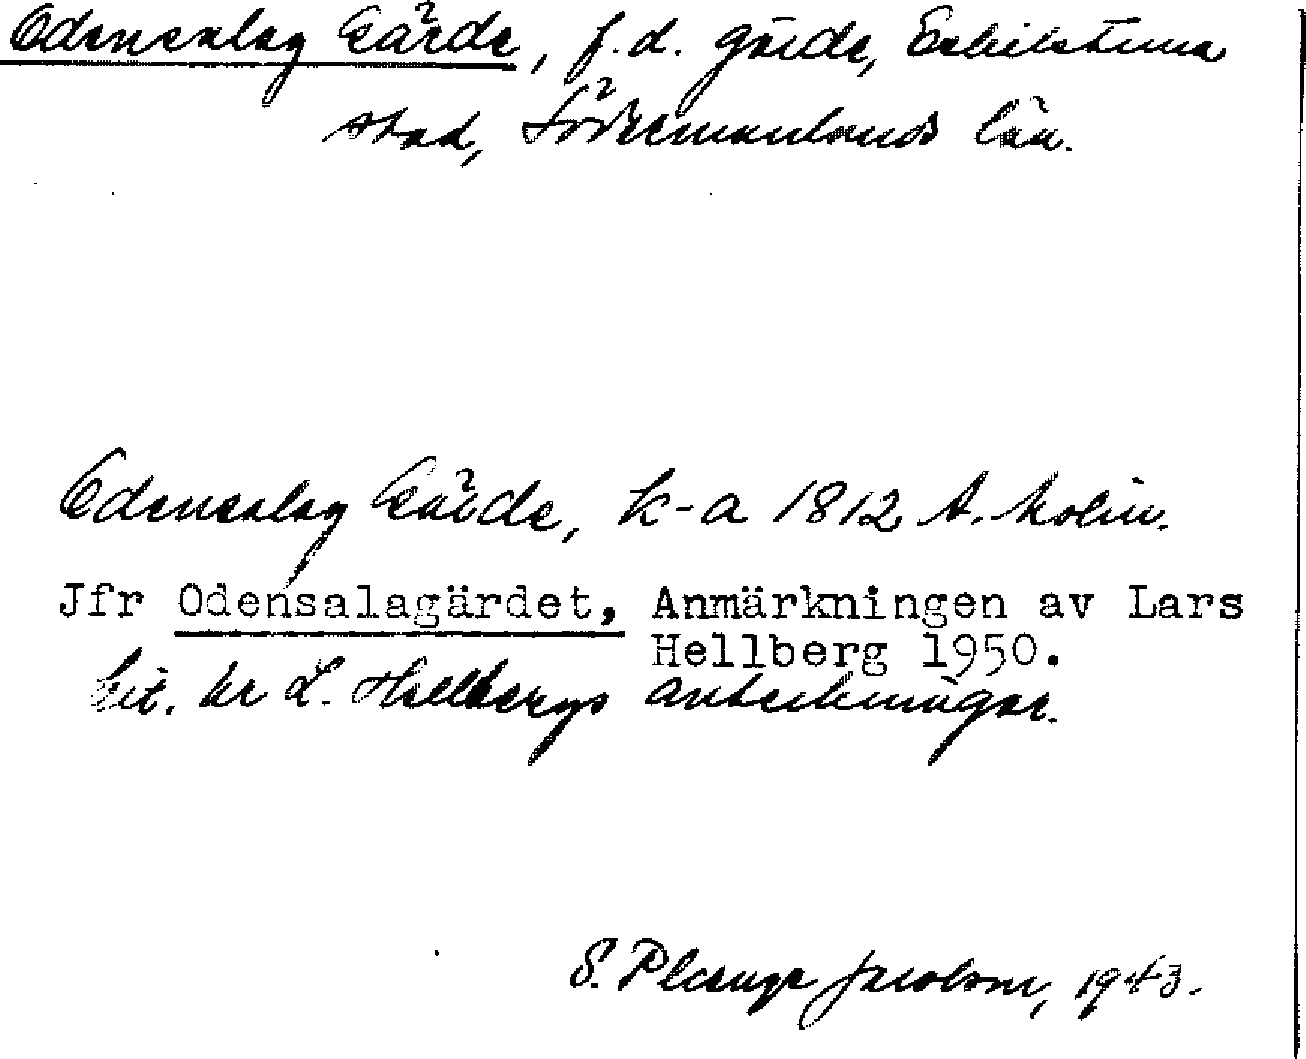 Odensalag Gärde, f.d. gärde, Eskilstuna
stad, Södermanlands län.
Odensalag Gärde, k-a 1812 A. Molin.
Jfr Odensalagärdet, Anmärkningen av Lars
Hellberg 1950.
Cit. ur L. Hellbergs anteckningar.
S. Plenge Jacobson, 1943.